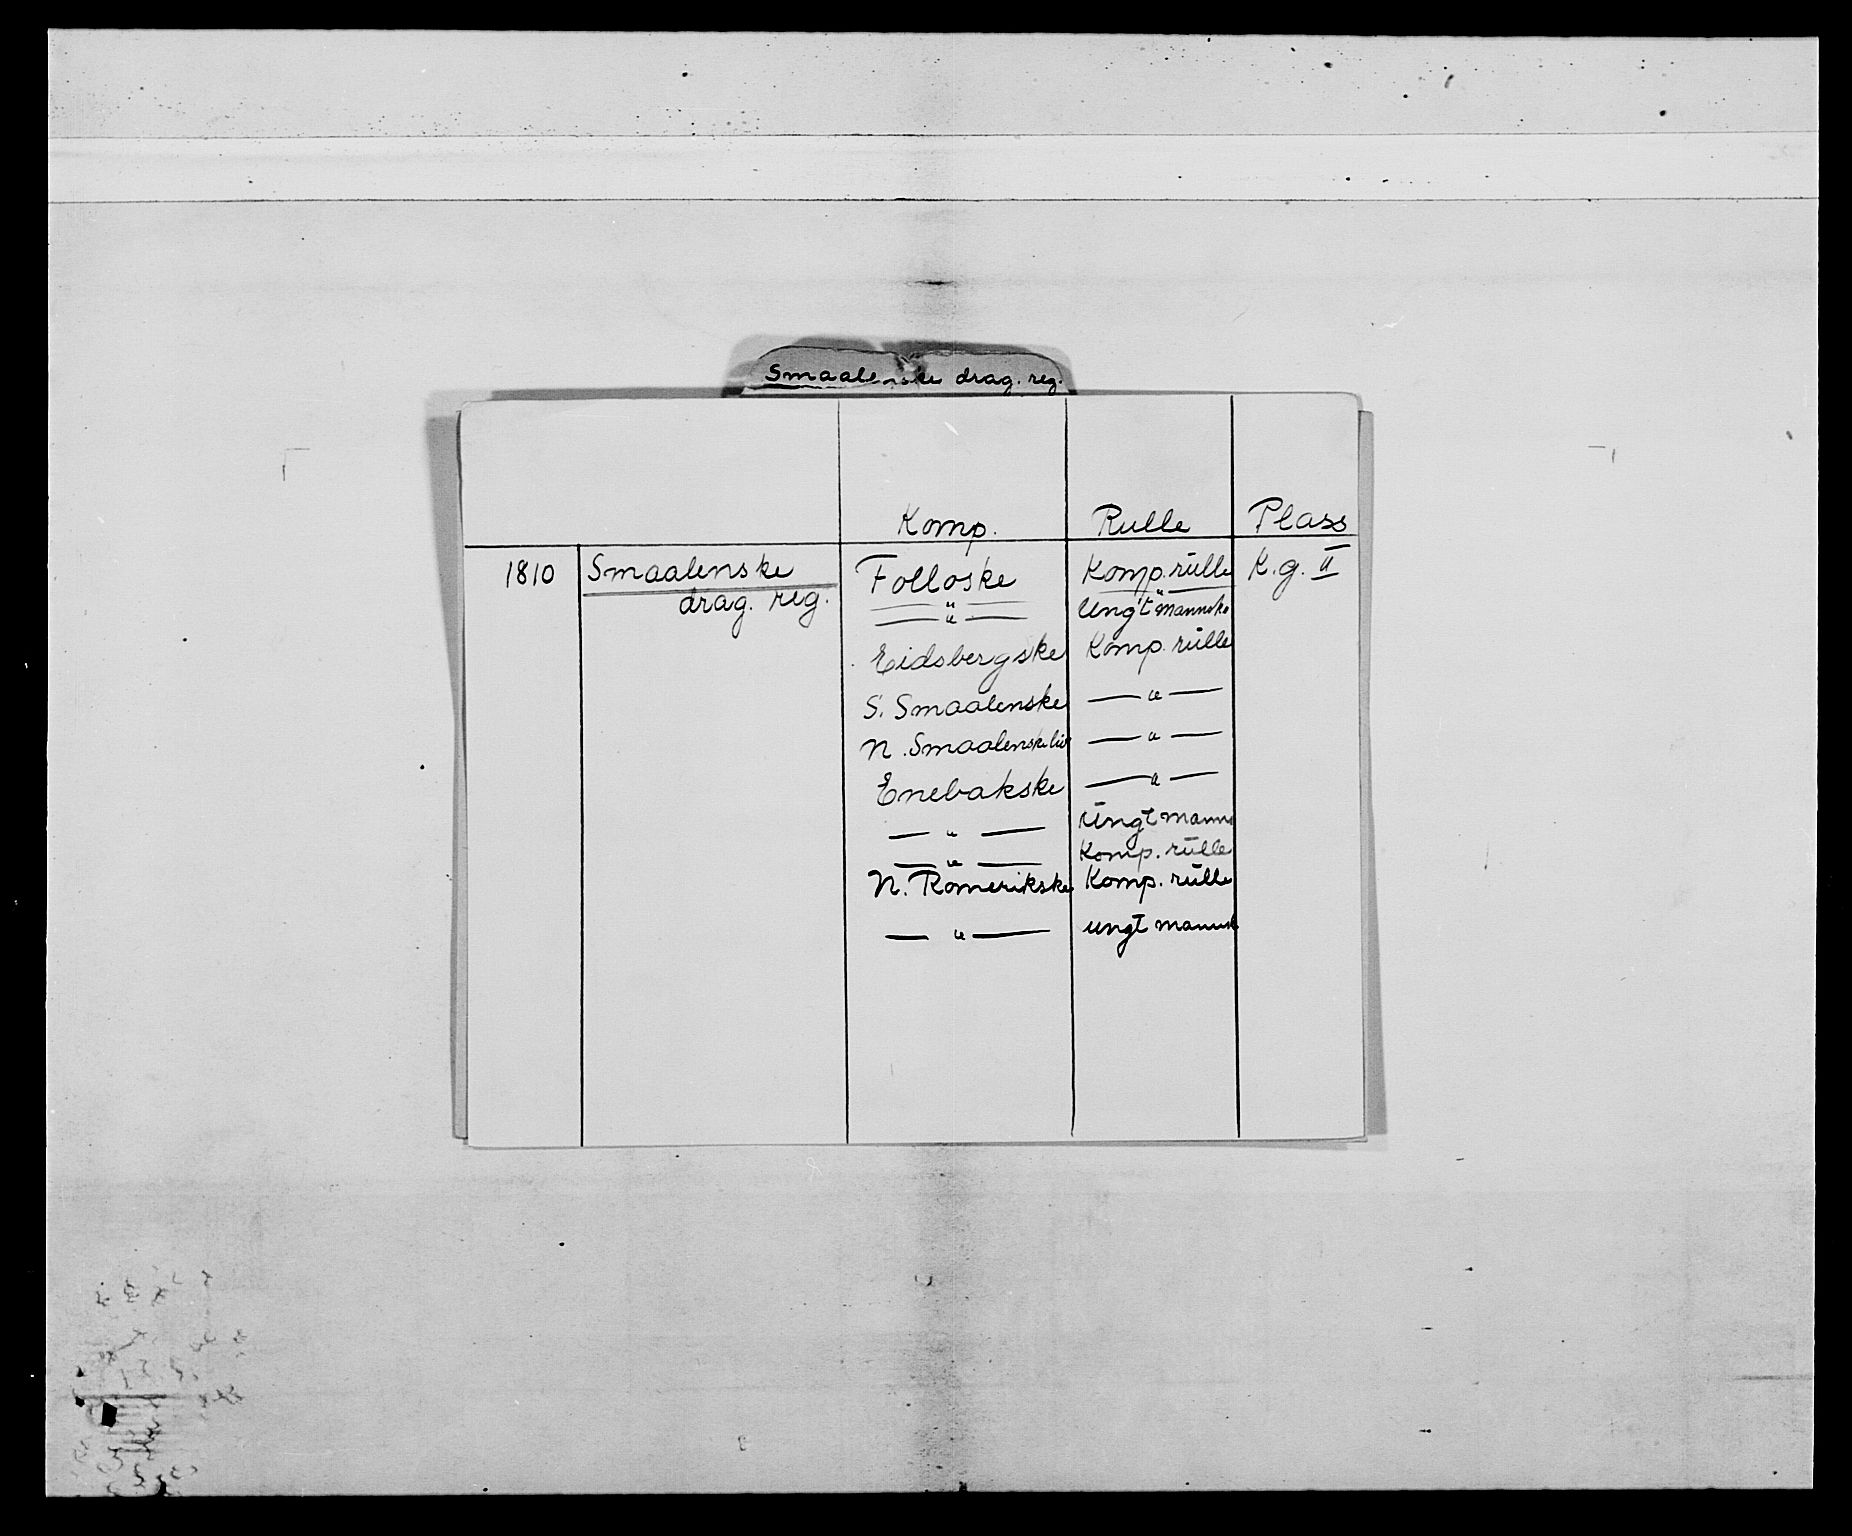 Smaalenske drag. reg.
Komp. Rulle Plass
1810 Smaalenske Folloske Komp. rulle K.g. II
drag. reg. — " — — " —
— " — Ungt mannske
Eidsbergske Komp. rulle
S. Smaalenske — " —
N. Smaalenske liv — " —
Enebakske — " —
— " — Ungt mann
— " — Komp. rulle
N. Romerikske Komp. rulle
— " — ungt mannsk